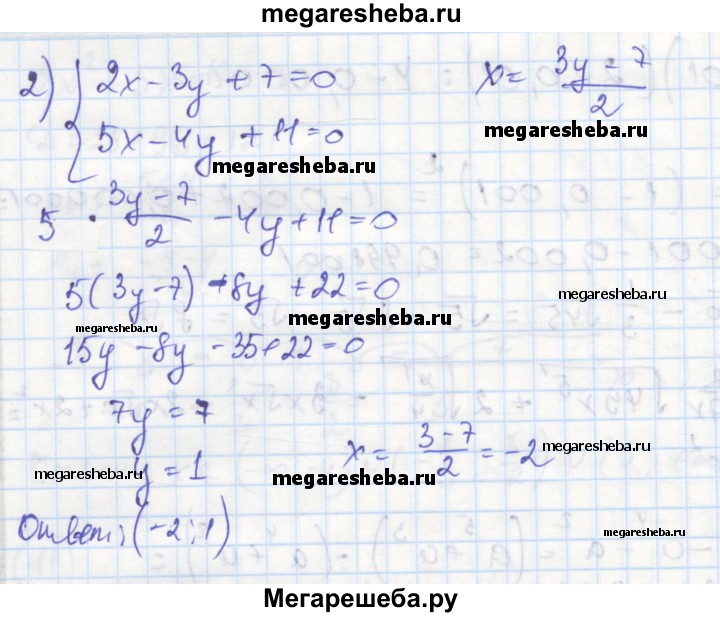 megaresheba.ru
2) { 2x - 3y + 7 = 0 x = (3y - 7)/2
5x - 4y + 11 = 0
megaresheba.ru
megaresheba.ru
5 · (3y - 7)/2 - 4y + 11 = 0
5(3y - 7) - 8y + 22 = 0
megaresheba.ru
megaresheba.ru
megaresheba.ru
15y - 8y - 35 + 22 = 0
7y = 7
y = 1 x = (3 - 7)/2 = -2
megaresheba.ru
megaresheba.ru
megaresheba.ru
Ответ: (-2; 1)
megaresheba.ru
megaresheba.ru
Мегарешеба.ру